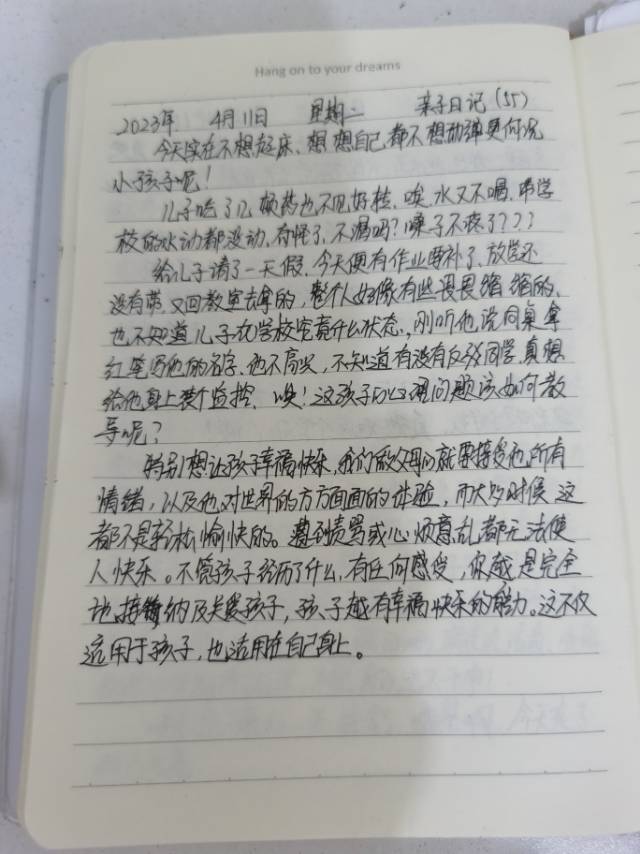 Hang on to your dreams
2023年 4月11日 星期二 亲子日记(55)
今天实在不想起床、想想自己都不想动弹更何况
小孩子呢!
儿子吃了几顿药也不见好转、唉、水又不喝、带学
校的水动都没动、奇怪了、不渴吗?嗓子不疼了???
给儿子请了一天假、今天便有作业要补了、放学还
没有带、又回教室去拿的、整个人好像有些畏畏缩缩的、
也不知道儿子在学校究竟什么状态、刚听他说同桌拿
红笔写他的名字、他不高兴、不知道有没有反驳同学、真想
给他身上装个监控、唉!这孩子心理问题该如何教
导呢?
特别想让孩子幸福快乐、我们做父母的就要接受他所有
情绪,以及他对世界的方方面面的体验,而大多时候这
都不是轻松愉快的。遭到责骂或心烦意乱都无法使
人快乐。不管孩子经历了什么,有任何感受,你越是完全
地接纳及关爱孩子,孩子越有幸福快乐的能力。这不仅
适用于孩子,也适用在自己身上。